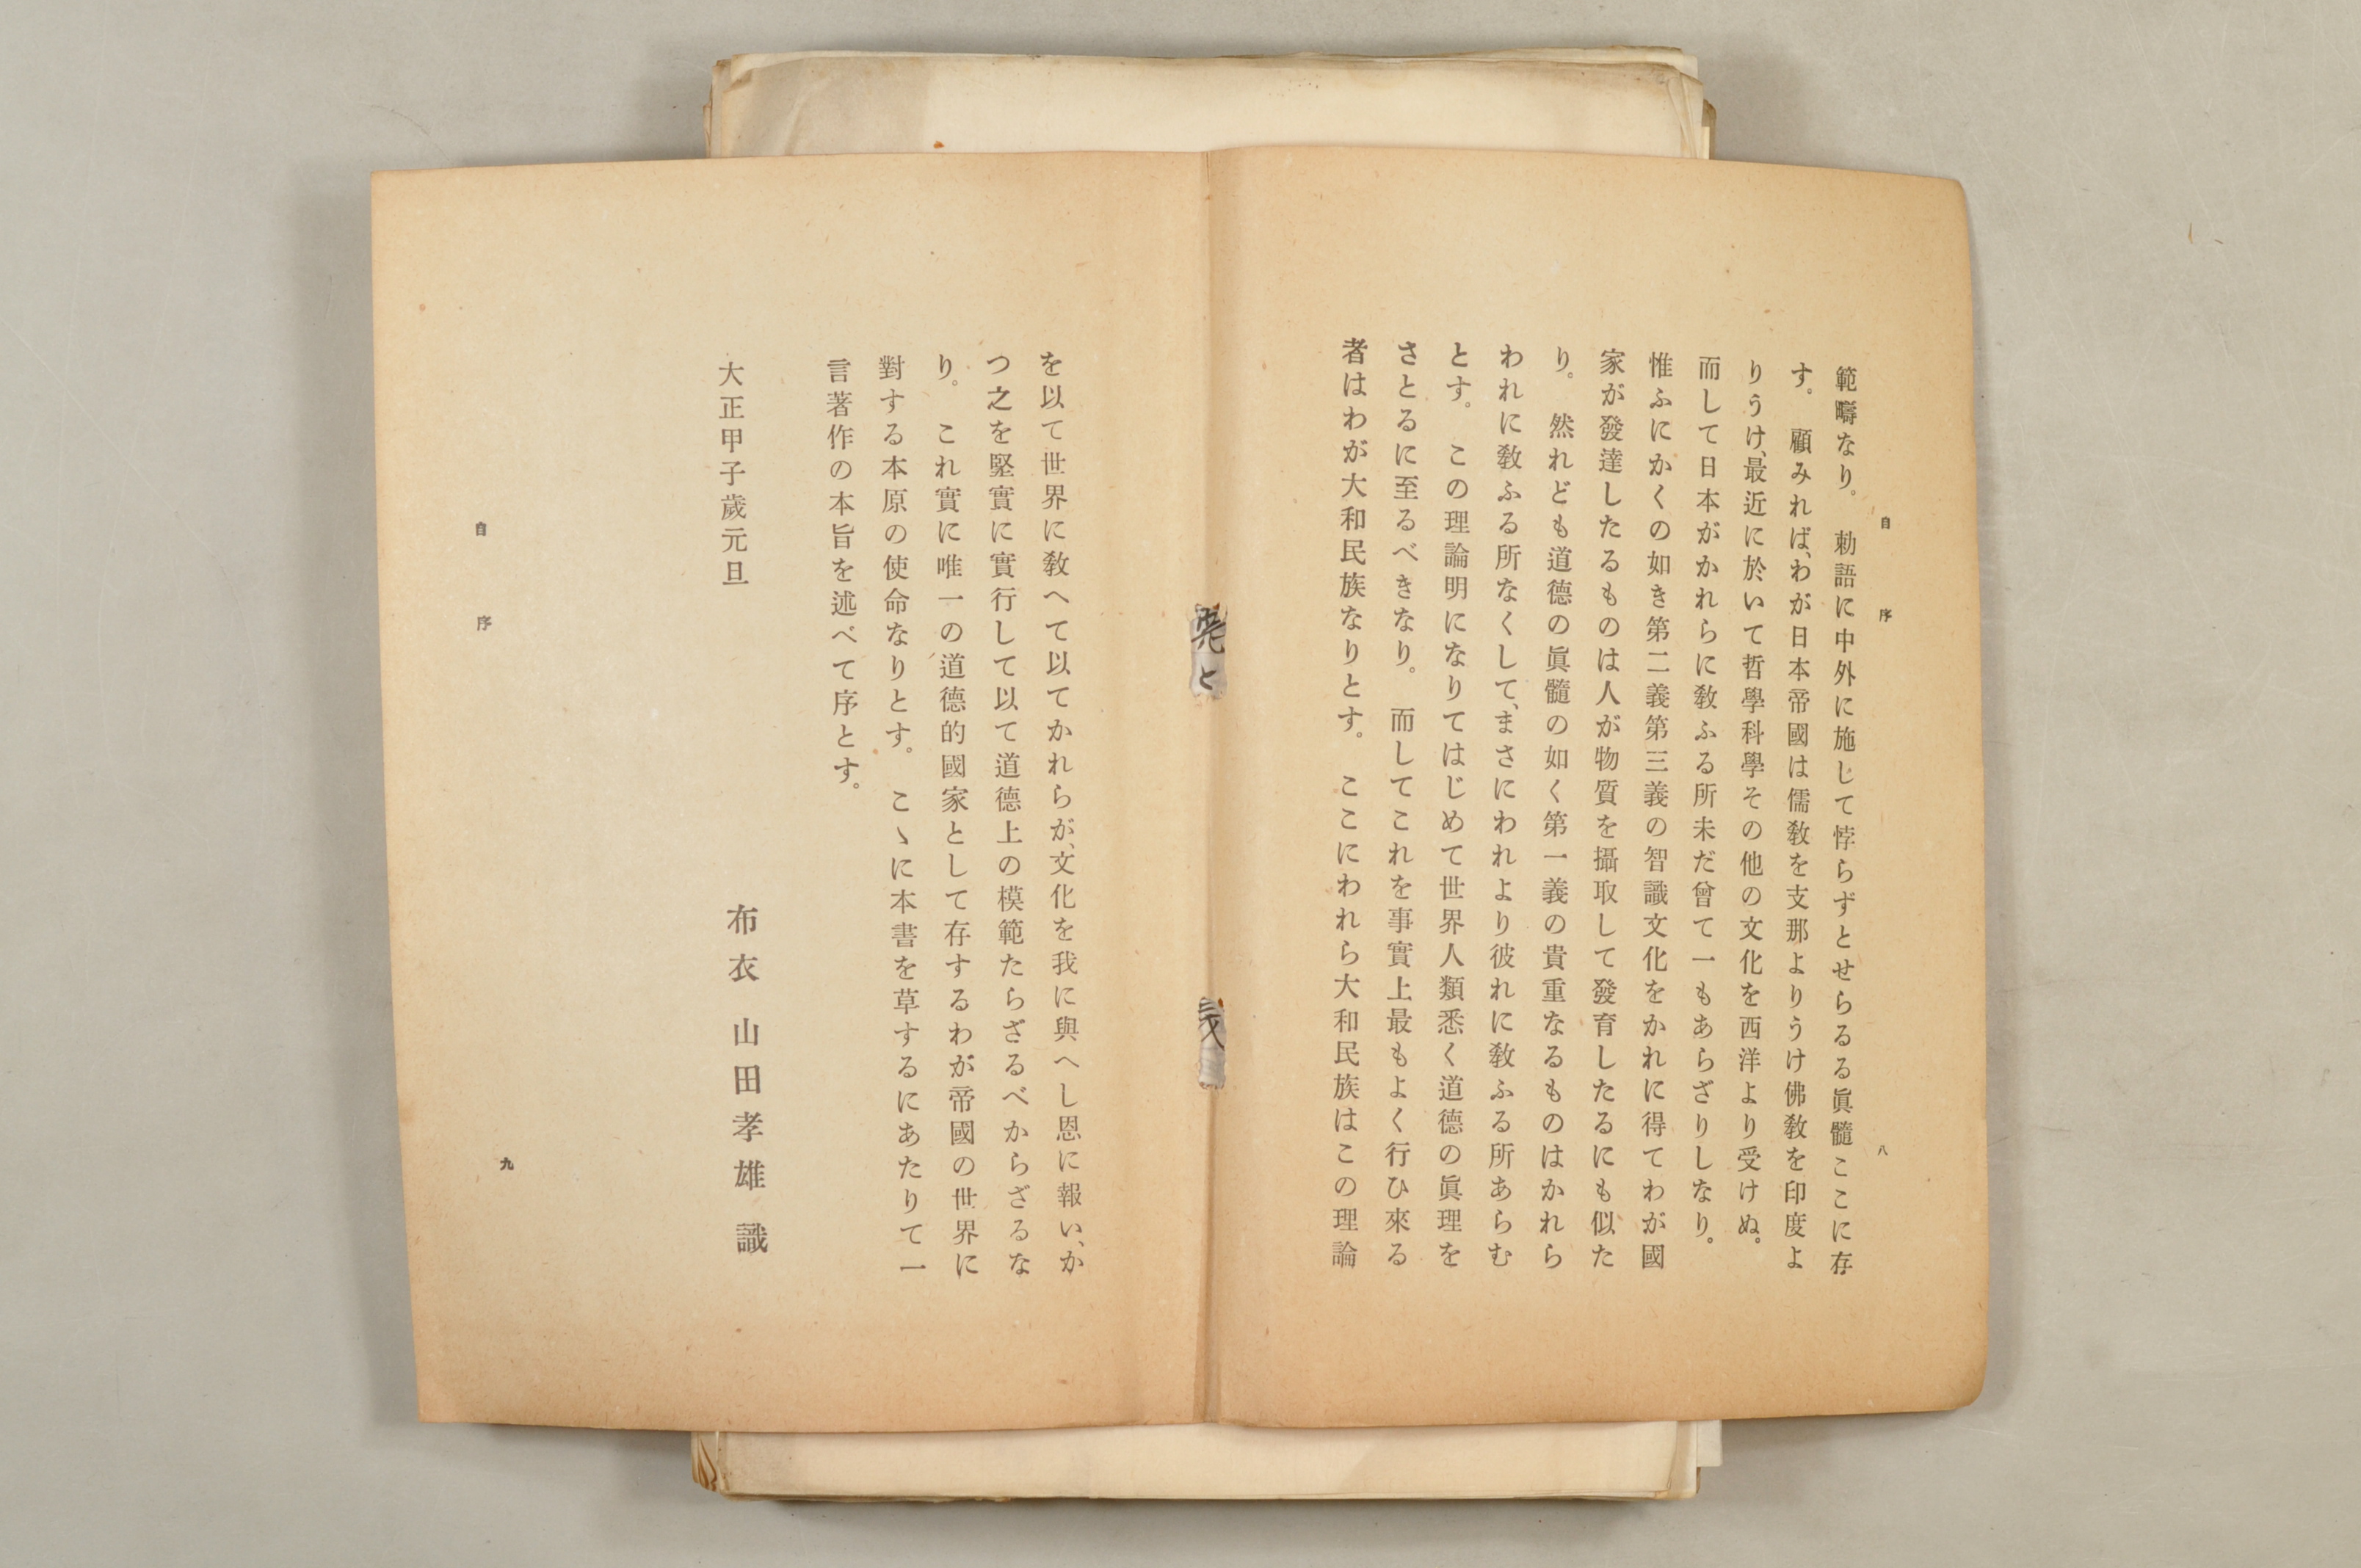 自序
八
範疇なり。　勅語に中外に施じて悖らずとせらるる眞髓ここに存
す。　顧みれば、わが日本帝國は儒教を支那よりうけ佛教を印度よ
りうけ、最近に於いて哲學科學その他の文化を西洋より受けぬ。
而して日本がかれらに敎ふる所未だ曾て一もあらざりしなり。
惟ふにかくの如き第二義第三義の智識文化をかれに得てわが國
家が發達したるものは人が物質を攝取して發育したるにも似た
り。　然れども道德の眞髓の如く第一義の貴重なるものはかれら
われに敎ふる所なくして、まさにわれより彼れに敎ふる所あらむ
とす。　この理論明になりてはじめて世界人類悉く道德の眞理を
さとるに至るべきなり。　而してこれを事實上最もよく行ひ來る
者はわが大和民族なりとす。　ここにわれら大和民族はこの理論
を以て世界に敎へて以てかれらが、文化を我に與へし恩に報い、か
つ之を堅實に實行して以て道德上の模範たらざるべからざるな
り。　これ實に唯一の道德的國家として存するわが帝國の世界に
對する本原の使命なりとす。　こゝに本書を草するにあたりて一
言著作の本旨を述べて序とす。
大正甲子歲元旦
布衣　山田孝雄　識
自序
九